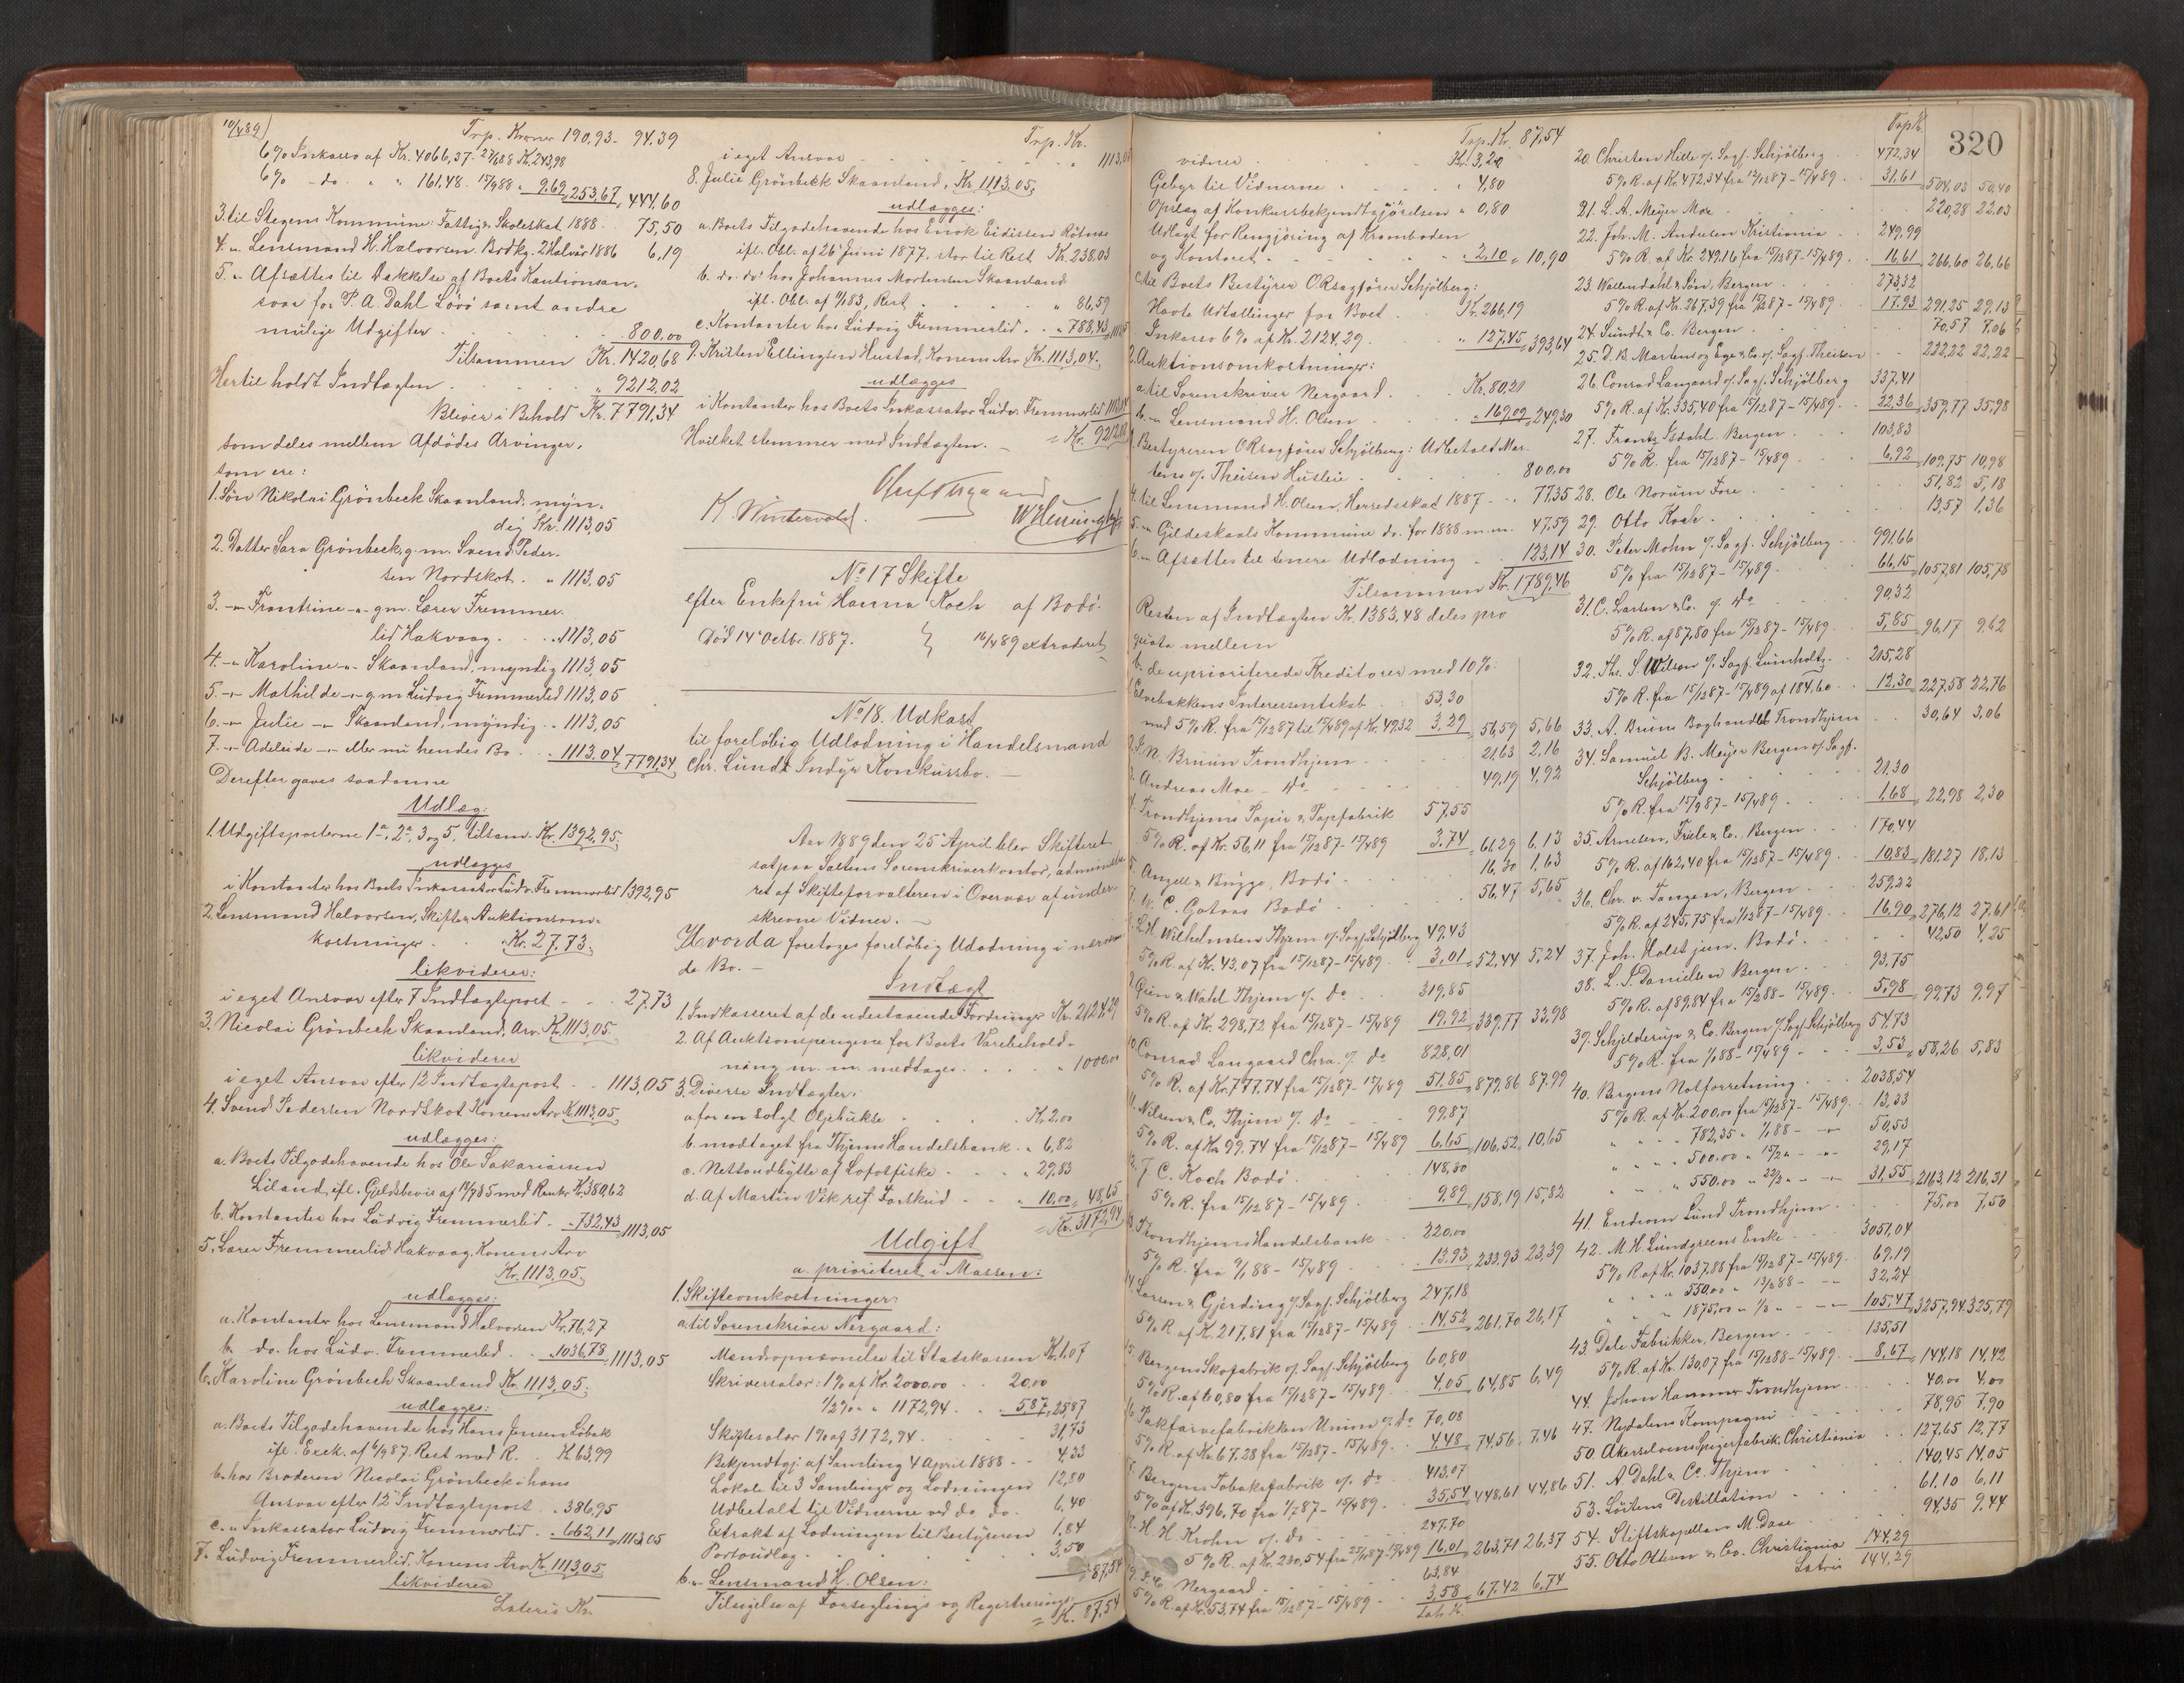 10/4 89
Trp. Kroner 190,93 - 94,39
6% Inkasso af Kr. 4066,37 - 27/1288 Kr. 243,98
6% - do. " " 161,48 - 15/988 " 9,69 = 253,67 = 444,60
3. til Stegens Kommune: Fattig & Skoleskat 1888 . 75,50
4. " Lensmand H. Halvorsen Brdkg. 2 Halvår 1886 6,19
5. " Afsættes til Dækkelse af Boets Kautionsan-
svar for P. A. Dahl Løvø samt andre
mulige Udgifter . . . 800,00
Tilsammen Kr. 1420,68
Hertil holdt Indtægten . . . " 9212,02
Bliver i Behold Kr. 7791,34
som deles mellem Afdødes Arvinger,
som ere:
1. Søn Nikolai Grönbeck Skaanland, myn-
dig Kr. 1113,05
2. Datter Sara Grönbeck, g. m. Svend Peder-
sen Nordskot . " 1113,05
3. -"- Frantrine -"- g. m. Lærer Fremmer-
lid Hakvaag . . . 1113,05
4. -"- Karoline -"- Skaanland, myndig 1113,05
5. -"- Mathilde -"- g m Ludvig Fremmerlid 1113,05
6. -"- Julie -"- Skaanland, myndig . . 1113,05
7. -"- Adelaide -"- eller nu hendes Bo . . 1113,04 7791,34
Derefter gaves saadanne
Udlæg:
1. Udgiftsposterne 1a, 2a, 3 og 5, tilsam. Kr. 1392,95,
udlægges
i Kontanter hos Boets Inkassator Ludv. Fremmerlid 1392,95
2. Lensmand Halvorsen, Skifte & Auktionsom-
kostninger . . Kr. 27,73,
likviderer:
i eget Ansvar efter 7 Indtægtspost - . . 27,73
3. Nicolai Grönbech Skaanland, Arv. Kr. 1113,05.
likviderer
i eget Ansvar efter 12 Indtægtspost . . 1113,05
4. Svend Pedersen Nordskot Konens Arv Kr. 1113,05
udlægges:
a. Boets Tilgodehavende hos Ole Sakariassen
Liland, ifl. Gjeldsbevis af 11/985 med Renter Kr. 380,62
b. Kontanter hos Ludvig Fremmerlid . " 732,43 1113,05
5. Lærer Fremmerlid Hakvaag, Konens Arv
Kr. 1113,05.
udlægges:
a. Kontanter hos Lensmand Halvorsen Kr. 76,27
b. do. hos Ludv. Fremmerlid . . 1036,78 1113,05
6. Karoline Grönbech Skaanland Kr. 1113,05.
udlægges:
a. Boets Tilgodehavende hos Hans Jensen Löbak
ifl. Exek. af 6/987. Rest med R. . Kr. 63,99
b. hos Broderen Nicolai Grönbeck i hans
Ansvar efter 12 Indtægtspost . . 386,95
c. " Inkassator Ludvig Fremmerlid . . 662,11 1113,05
7. Ludvig Fremmerlid, Konens Arv Kr. 1113,05.
likviderer
Lateris Kr.
Trp. Kr.
i eget Ansvar . . . . " 1113,05
8. Julie Grönbeck Skaanland, Kr. 1113,05;
udlægges:
a. Boets Tilgodehavende hos Enok Eidissen Rötnes
ifl. Obl. af 26 Juni 1877, stor til Rest Kr. 238,03
b. do. do. hos Johannes Mortensen Skaanland
ifl. Obl. af 9/1183, Rest . . . " 86,59
c. Kontanter hos Ludvig Fremmerlid . . " 788,43 1113,05
9. Kristen Ellingsen Hustad, Konens Arv Kr. 1113,04.
udlægges
i Kontanter hos Boets Inkassator Ludv. Fremmerlid 1113,04
Hvilket stemmer med Indtægten. - = Kr. 9212,02
K. Wintervold.
No 17 Skifte
efter Enkefru Hanna Koch af Bodø.
Død 14 Octbr. 1887. } 16/489 extraderet
No 18. Udkast
til foreløbig Udlodning i Handelsmand
Chr. Lundt Indyr Konkursbo. -
Aar 1889 den 25 April blev Skifteret
sat paa Saltens Sorenskriverkontor, administre-
ret af Skifteforvalteren i Overvær af under-
skrevne Vidner. -
Hvorda foretoges foreløbig Udlodning i nærværen-
de Bo. -
Indtægt
1. Indkasseret af de udestaaende Fordringer Kr. 2124,29
2. Af Auktionspengene for Boets Varebehold-
ning m. m. medtages . . . . " 1000,00
3. Diverse Indtægter:
a. for en solgt Oljebukse . . . Kr. 2,00
b. modtaget fra Thjems Handelsbank . " 6,82
c. Nettoudbytte af Lofotfiske . . . " 29,83
d. Af Martin Vik ref. Forskud . . . " 10,00 = 48,65
= Kr. 3172,94
Udgift
a. prioriteret i Massen:
1. Skifteomkostninger:
a. til Sorenskriver Nergaard:
Mandsopnævnelse til Statskassen Kr. 1,07
Skriversalær: 1% af Kr. 2000,00 . . 20,00
1/2% " " 1172,94 . . 5,87 = 25,87
Skiftesalær 1% af 3172,94 . . . 31,73
Bekjendtgj. af Samling 4 April 1888 . - 4,33
Lokale til 3 Samlinger og Lodningen 12,80
Udbetalt til Vidnerne ved do do. . 6,40
Extrakt af Lodningen til Bestyreren 1,84
Portoudlæg . . . . . 3,50
= 87,54
b. " Lensmand H. Olsen:
Tilsigelse af Forseglings og Registrerings-
= Kr. 87,54
Trp. Kr. 87,54
vidner . . . . Kr. 3,20
Gebyr til Vidnerne . . . " 4,80
Opslag af Konkursbekjendtgjørelsen " 0,80
Udlagt for Rengjøring af Kramboden
og Kontoret . . . . " 2,10 = 10,90
c. til Boets Bestyrer ORsagfører Schjølberg:
Havte Udtællinger for Boet . . Kr. 266,19
Inkasso 6% af Kr. 2124,29 . . " 127,45 = 393,64
2. Auktionsomkostninger:
a. til Sorenskriver Nergaard . . . Kr. 80,21
b. " Lensmand H. Olsen . . . " 169,09 = 249,30
3. Bestyreren ORsagfører Schjølberg: Udbetalt Mar-
tens o/ Theisen Husleie . . . 800,00
4. til Lensmand H. Olsen, Herredsskat 1887 - . . 77,35
5. " Gildeskaals Kommune do. for 1888 m. m. 47,59
6. " Afsættes til senere Udlodning . . 123,14
Tilsammen Kr. 1789,46
Resten af Indtægten Kr. 1383,48 deles pro
quota mellem
b. de uprioriterede Kreditorer med 10%:
1. Elvebakkens Interessentskab . 53,30
med 5% R. fra 15/1287 til 15/489 af Kr. 49,32 3,29 = 56,59 5,66
2. I. N. Bruun Trondhjem . . . 21,63 2,16
3. Andreas Moe - do . . . 49,19 4,92
4. Trondhjems Papir & Papfabrik 57,55
5% R. af Kr. 56,11 fra 15/1287 - 15/489 3,74 = 61,29 6,13
5. Angell & Brygge, Bodø . . . 16,30 1,63
7. W. C. Gotaas Bodø . . . 56,47 5,65
8. L.H. Wilhelmsen Thjem o/ Sagf. Schjølberg 49,43
5% R. af Kr. 43,07 fra 15/1287 - 15/489 . . 3,01 = 52,44 5,24
9. Grün & Wahl Thjem o/ do . . 319,85
5% R. af Kr. 298,72 fra 15/1287 - 15/489 19,92 = 339,77 33,98
10. Conrad Langaard Chra. o/ do 828,01
5% R. af Kr. 777,74 fra 15/1287 - 15/489 51,85 = 879,86 87,99
11. Nilsen & Co, Thjem o/ do . . 99,87
5% R. af Kr. 99,74 fra 15/1287 - 15/489 6,65 = 106,52 10,65
12. J. C. Koch Bodø . . . 148,30
5% R. fra 15/1287 - 15/489 . . . 9,89 = 158,19 15,82
13. Trondhjems Handelsbank . . 220,00
5% R. fra 9/188 - 15/489 . . . 13,93 = 233,93 23,39
14. Larsen & Gjerding o/ Sagf. Schjølberg 247,18
5% R. af Kr. 217,81 fra 15/1287 - 15/489 . . 14,52 = 261,70 26,17
15. Bergens Skofabrik o/ Sagf. Schjølberg 60,80
5% R. af 60,80 fra 15/1287 - 15/489 . . 4,05 = 64,85 6,49
16. Pakfarvefabrikken Union o/ do 70,08
5% R. af Kr. 67,28 fra 15/1287 - 15/489 . . 4,48 = 74,56 7,46
17. Bergens Tobaksfabrik o/ do . 413,07
5% af Kr. 396,70 fra 1/787 - 15/489 . . 35,54 = 448,61 44,86
18. H. H. Krohn o/ do . . . 247,70
5% R. af Kr. 230,54 fra 25/1187 - 15/489 16,01 = 263,71 26,37
19. Nergaard . . . 63,84
5% R. af Kr. 53,74 fra 15/1287 - 15/489 . . 3,58 = 67,42 6,74
Lat. Kr.
Trp Kr.
320
20. Christen Hille o/ Sagf. Schjølberg . . 472,34
5% R. af Kr. 472,34 fra 15/1287 - 15/489 . . 31,61 = 504,03 50,40
21. L. A. Meyer Moe . . . 220,28 22,03
22. Joh. M. Andresen Kristiania . . 249,99
5% R. af Kr. 249,16 fra 15/1287 - 15/489 . . 16,61 = 266,60 26,66
23. Wallendahl & Søn, Bergen . . . 273,32
5% R. af Kr. 267,39 fra 15/1287 - 15/489 . . 17,93 291,25 29,13
24. Sundt & Co. Bergen . . . 70,57 7,06
25. D. B. Martens og Ege & Co. o/ Sagf. Theisen . . 222,22 22,22
26. Conrad Langaard o/ Sagf. Schjølberg 337,41
5% R. af Kr. 335,40 fra 15/1287 - 15/489 . . 22,36 = 359,77 35,98
27. Frantz Isdahl. Bergen . . . 103,83
5% R. fra 15/1287 - 15/489 . . . 6,92 = 109,75 10,98
28. Ole Norum Fore . . . 51,82 5,18
29. Otto Koch . . . 13,57 1,36
30. Peter Mohn o/ Sagf. Schjølberg . . 991,66
5% fra 15/1287 - 15/489 . . . 66,15 = 1057,81 105,78
31. C. Larsen & Co. o/ do . . 90,32
5% R. af 87,80 fra 15/1287 - 15/489 . . 5,85 = 96,17 9,62
32. Thr. S. Wilson o/ Sagf. Lumholtz . . 215,28
5% R. fra 15/1287 - 15/489 af 184,60 . . 12,30 = 227,58 22,76
33. A. Bruns Boghandel Trondhjem . . 30,64 3,06
34. Samuel B. Meyer Bergen o/ Sagf.
Schjølberg . . . 21,30
5% R. fra 15/987 - 15/489 . . . 1,68 = 22,98 2,30
35. Arnesen, Friele & Co. Bergen . . 170,44
5% R. af 162,40 fra 15/1287 - 15/489 . . 10,83 = 181,27 18,13
36. Chr. v. Tangen, Bergen . . . 259,22
5% R. af 245,75 fra 1/1287 - 15/489 . . 16,90 = 276,12 27,61
37. Joh. Holst jun. Bodø . . . 42,50 4,25
38. L. S. Danielsen Bergen . . . 93,75
5% R. af 89,84 fra 15/1288 - 15/489 . . 5,98 = 99,73 9,97
39. Schjelderup & Co. Bergen o/ Sagf. Schjølberg 54,73
5% R. fra 1/188 - 15/489 . . . 3,53 = 58,26 5,83
40. Bergens Notforretning . . . 2038,54
5% R. af Kr. 200,00 fra 15/1287 - 15/489 . . 13,33
" " " " 782,35 " 1/188 - " 50,53
" " " " 500,00 " 15/2 " - " 29,17
" " " " 550,00 " 22/2 " - " 31,55 = 2163,12 216,31
41. Endrom Lund Trondhjem . . . 75,00 7,50
42. M. H. Lundgreens Enke . . . 3051,04
5% R. af Kr. 1037,88 fra 15/1287 - 15/489 . . 69,19
" " " 550,00 " 13/288 - " 32,24
" " " 1875,00 " 1/3 " - " 105,47 = 3257,94 325,79
43. Dale Fabrikker, Bergen . . . 135,51
5% R. af Kr. 130,07 fra 15/1288 - 15/489 . . 8,67 = 144,18 14,42
44. Johan Hammer Trondhjem . . . 40,00 4,00
47. Nydalens Kompagni . . . 78,95 7,90
50. Akerselvens Spigerfabrik, Christiania . . 127,65 12,77
51. A Dahl & Co. Thjem . . . 140,45 14,05
53. Løitens Destillation . . . 61,10 6,11
54. Stiftskapellan M. Daae . . . 94,35 9,44
55. Otto Olson & Co. Christiania 144,29
Latris 144,29